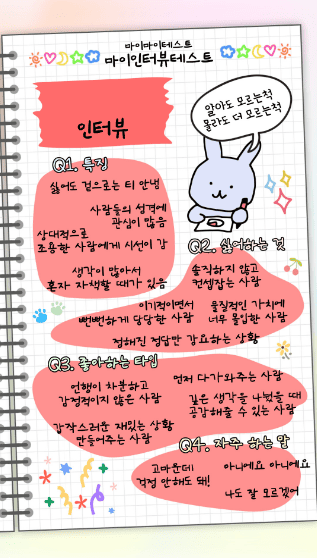 마이마이테스트
마이인터뷰테스트
인터뷰
알아도 모르는척
몰라도 더 모르는척
Q1. 특징
싫어도 겉으로는 티 안냄
사람들의 성격에
관심이 많음
상대적으로
조용한 사람에게 시선이 감
생각이 많아서
혼자 자책할 때가 있음
Q2. 싫어하는 것
솔직하지 않고
컨셉잡는 사람
이기적이면서
뻔뻔하게 당당한 사람
물질적인 가치에
너무 몰입한 사람
정해진 정답만 강요하는 상황
Q3. 좋아하는 타입
언행이 차분하고
감정적이지 않은 사람
먼저 다가와주는 사람
깊은 생각을 나눴을 때
공감해줄 수 있는 사람
갑작스러운 재밌는 상황
만들어주는 사람
Q4. 자주 하는 말
고마운데
걱정 안해도 돼!
아니에요 아니에요
나도 잘 모르겠어